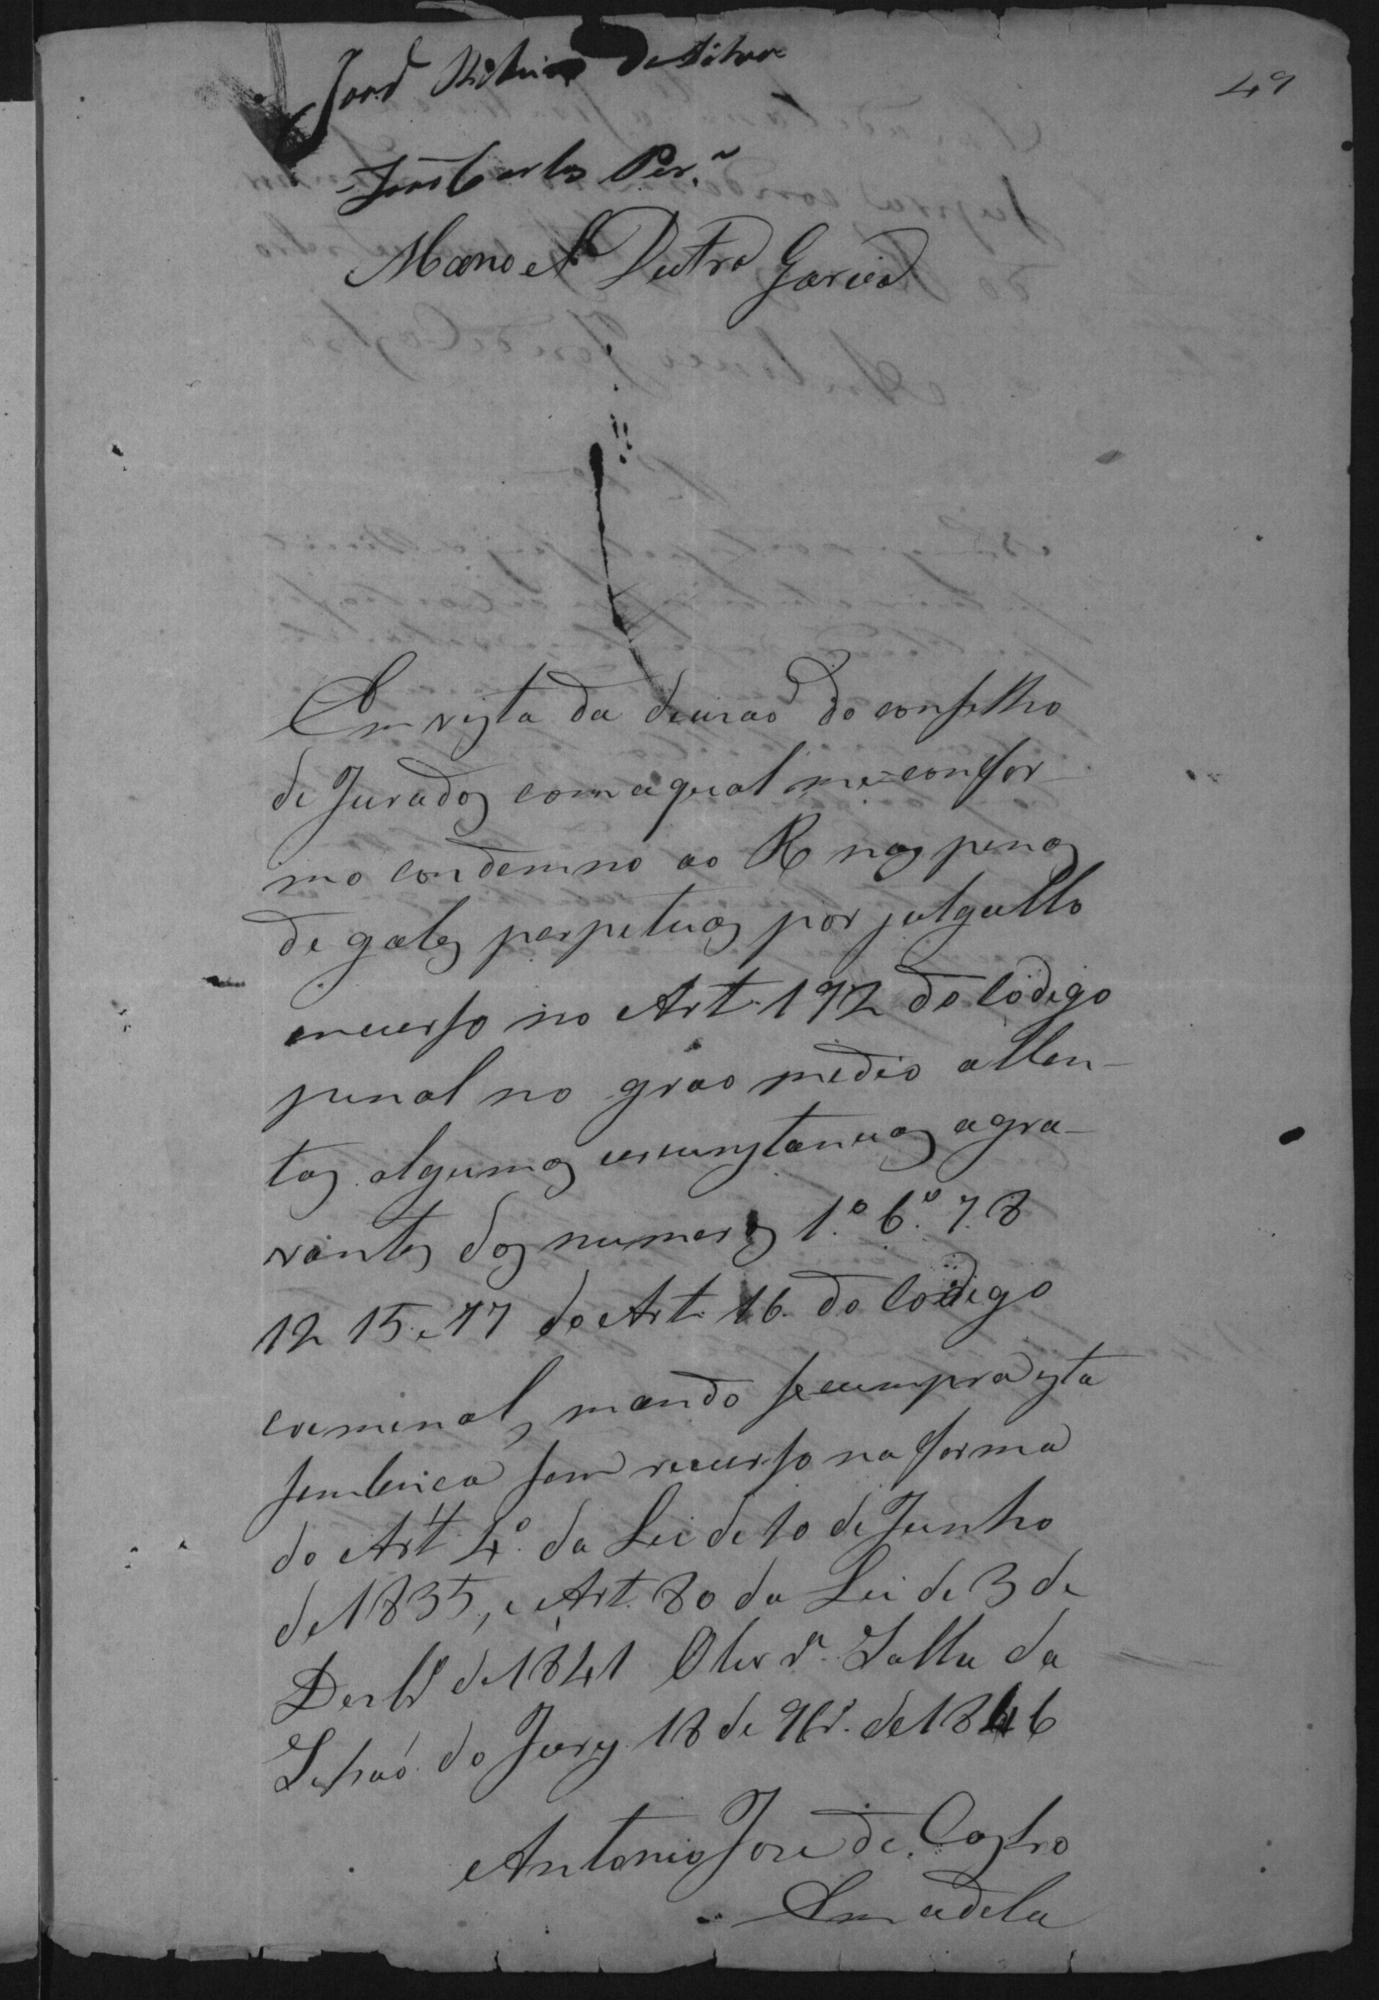 49
João Ribeiro da Silva
João Carlos Per.ª
Manoel Dutra Garcia
Em vista da decisaõ do conselho
de Jurados com a qual me confor-
mo condemno ao R nas penas
de gales perpetuas por julgallo
incurso no Art. 192 do Codigo
penal no grao medio atten-
tas algumas circunstancias agra-
vantes dos numeros 1.º 6.º 7. 8
12 15. e 17 do Art. 16. do Codigo
criminal, mando se cumpra esta
sentença sem recurso na forma
do Art. 4.º da Lei de 10 de Junho
de 1835, e Art. 80 da Lei de 3 de
Dezbr.º de 1841 Salla da
Sessaõ do Jury 18 de 9br.º de 1846
Antonio Jose de Castro